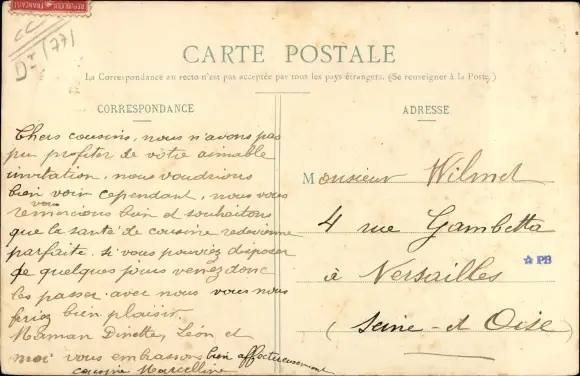 REPUBLIQUE FRANÇAISE
CC
Dr 1771
CARTE POSTALE
La Correspondance au recto n'est pas acceptée par tous les pays étrangers. (Se renseigner à la Poste.)
CORRESPONDANCE
Chers cousins, nous n'avons pas
pu profiter de votre aimable
invitation, nous voudrions
bien voir cependant, nous vous
remercions bien et souhaitons
que la santé de cousine redevienne
parfaite. si vous pouviez disposer
de quelques jours venez donc
les passer avec nous vous nous
feriez bien plaisir.
Maman Dinette, Léon et
moi vous embrassons bien affectueusement
cousine Marcelline
ADRESSE
Monsieur Wilmet
4 rue Gambetta
à Versailles
PB
(Seine-et Oise)